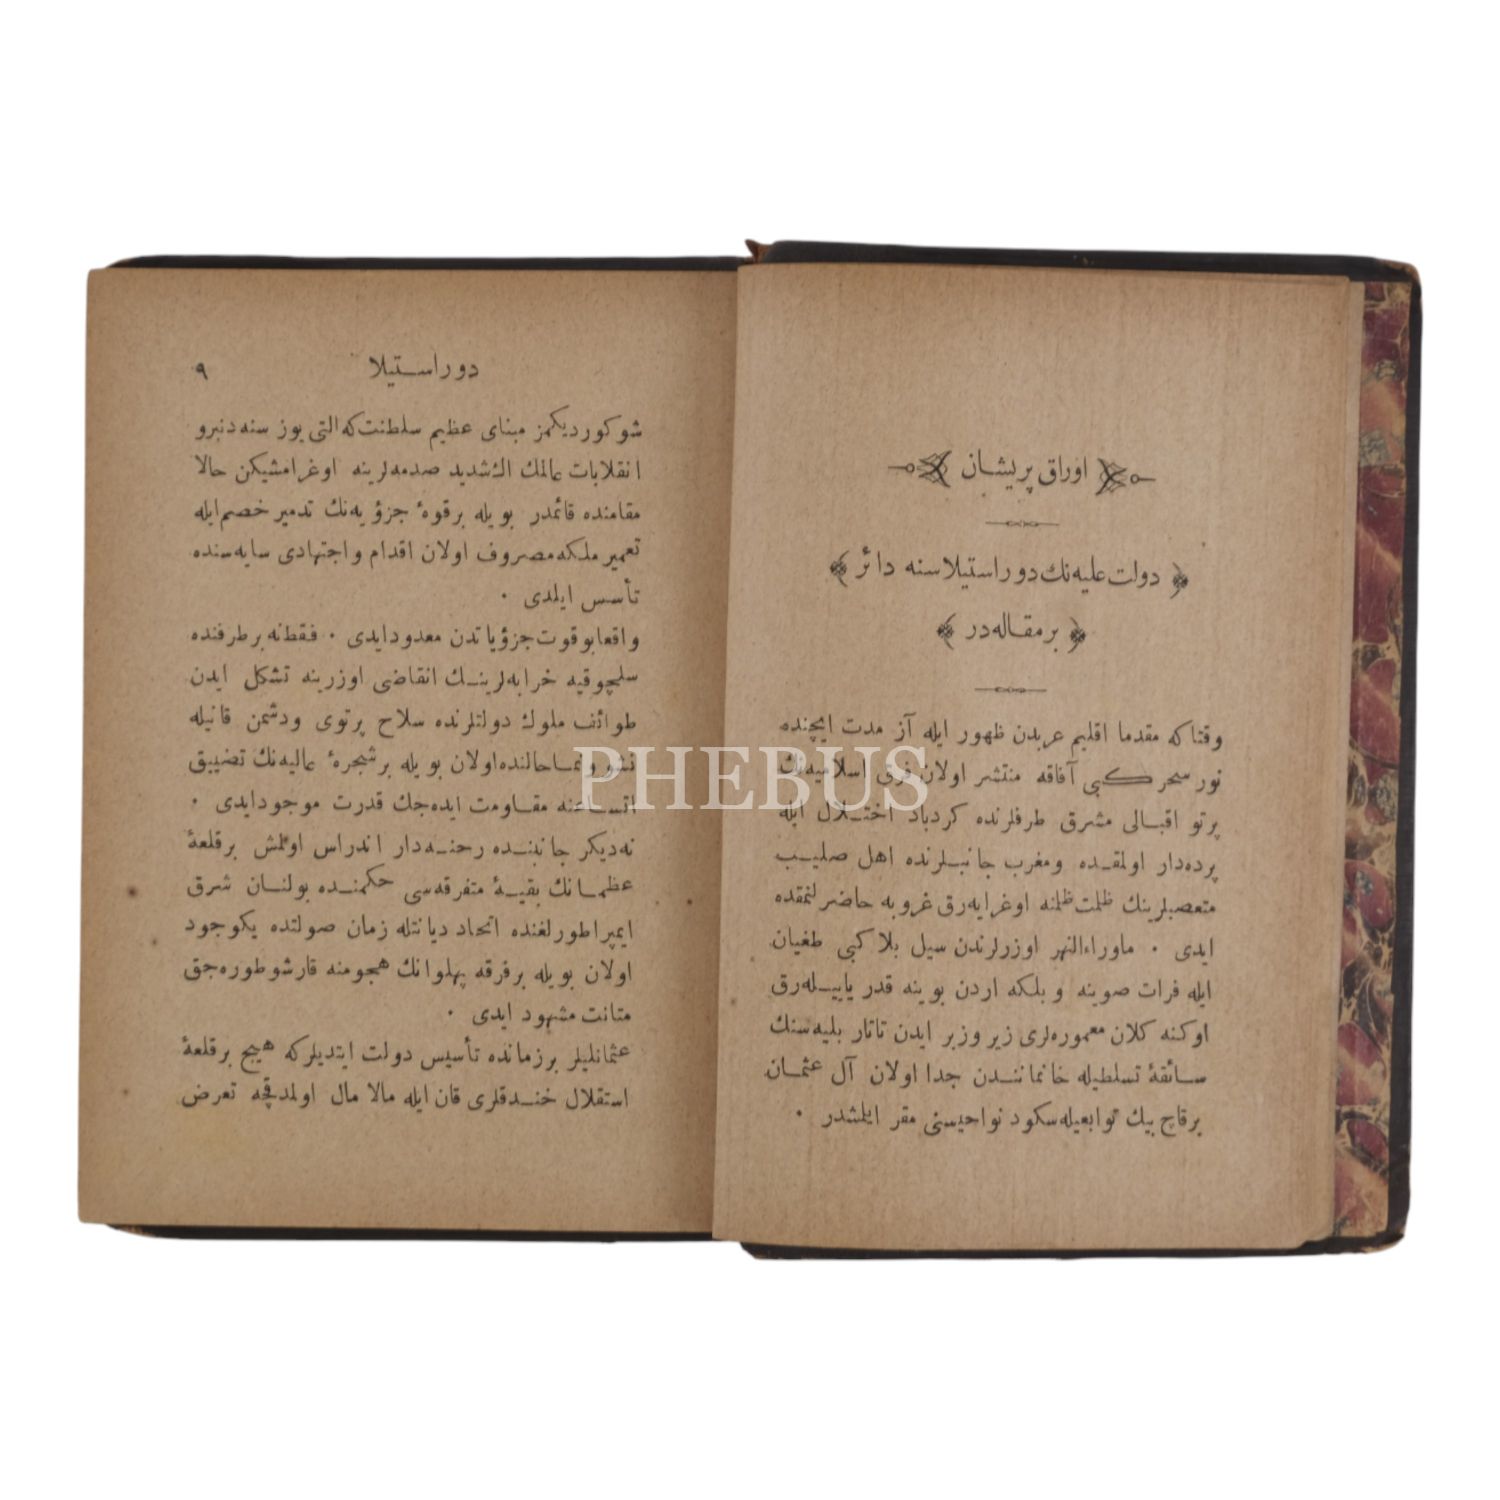 اوراق پریشان
دولت علیه‌نك دور استیلاسنه دائر
بر مقاله‌در
وقتاكه مقدما اقلیم عربدن ظهور ایله آز مدت ایچنده
نور سحر كبی آفاقه منتشر اولان فری اسلامیه‌نك
پرتو اقبالی مشرق طرفلرنده كردباد اختلال ایله
پرده‌دار اولمقده ومغرب جانبلرنده اهل صلیب
متعصبلرینك ظلمت ظلمنه اوغرایه‌رق غروبه حاضرلنمقده
ایدی . ماوراءالنهر اوزرلرندن سیل بلا كبی طغیان
ایله فرات صوینه وبلكه اردن بوینه قدر یاییله‌رق
اوكنه كلان معموره‌لری زیر وزبر ایدن تاتار بلیه‌سنك
سائقۀ تسلطیله خانماننندن جدا اولان آل عثمان
برقاچ بیك توابعیله سكود نواحیسنی مقر ایلمشدر .
دور استیلا
٩
شو كوردیكمز مبنای عظیم سلطنت كه التی یوز سنه‌دنبرو
انقلابات عالمك اك شدید صدمه‌لرینه اوغرامشیكن حالا
مقامنده قائمدر بویله برقوۀ جزؤیه‌نك تدمیر خصم ایله
تعمیر ملكه مصروف اولان اقدام واجتهادی سایه‌سنده
تأسس ایلدی .
واقعا بوقوت جزؤیاتدن معدود ایدی . فقط نه برطرفنده
سلچوقیه خرابه‌لرینك انقاضی اوزرینه تشكل ایدن
طوائف ملوك دولتلرنده سلاح پرتوی ودشمن قانیله
نشو ونما حالنده اولان بویله برشجرۀ عالیه‌نك تضییق
اتساعنه مقاومت ایده‌جك قدرت موجود ایدی .
نه دیكر جانبنده رخنه‌دار اندراس اولمش برقلعۀ
عظمانك بقیۀ متفرقه‌سی حكمنده بولنان شرق
ایمپراطورلغنده اتحاد دیانتله زمان صولتده یكوجود
اولان بویله برفرقه پهلوانك هجومنه قارشو طوره‌جق
متانت مشهود ایدی .
عثمانلیلر برزمانده تأسیس دولت ایتدیلركه هیچ برقلعۀ
استقلال خندقلری قان ایله مالا مال اولمدقچه تعرض
PHEBUS